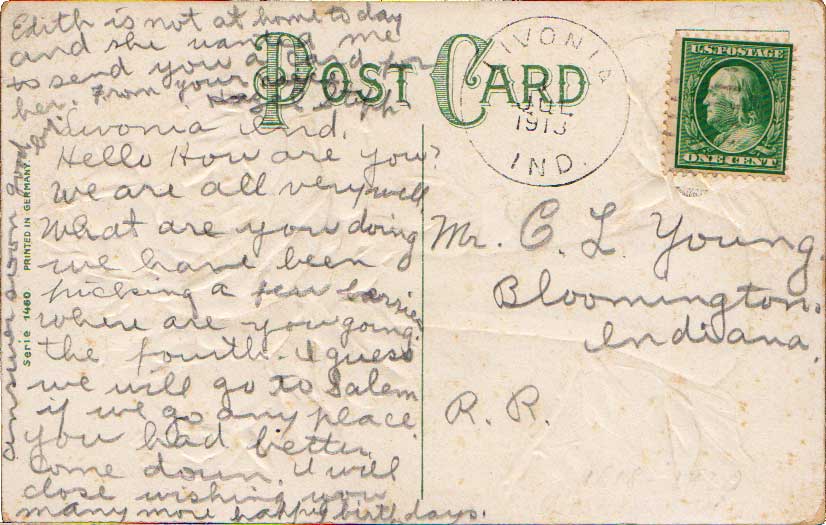 Edith is not at home to day
and she wanted me
to send you a card for
her. From your
Livonia Ind.
Hello How are you?
We are all very well,
What are you doing
we have been
picking a few berries
where are you going
the fourth. I guess
we will go to Salem
if we go any place.
you had better
come down. I will
close wishing you
many more happy birthdays.
answer soon good bye
Serie 1460 PRINTED IN GERMANY.
POST CARD
LIVONIA
JUL
1913
IND.
U.S. POSTAGE
ONE CENT
Mr. C. L. Young.
Bloomington.
Indiana.
R. R.